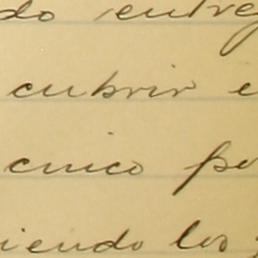 do entreg
cubrir e
cnico po
iendo los